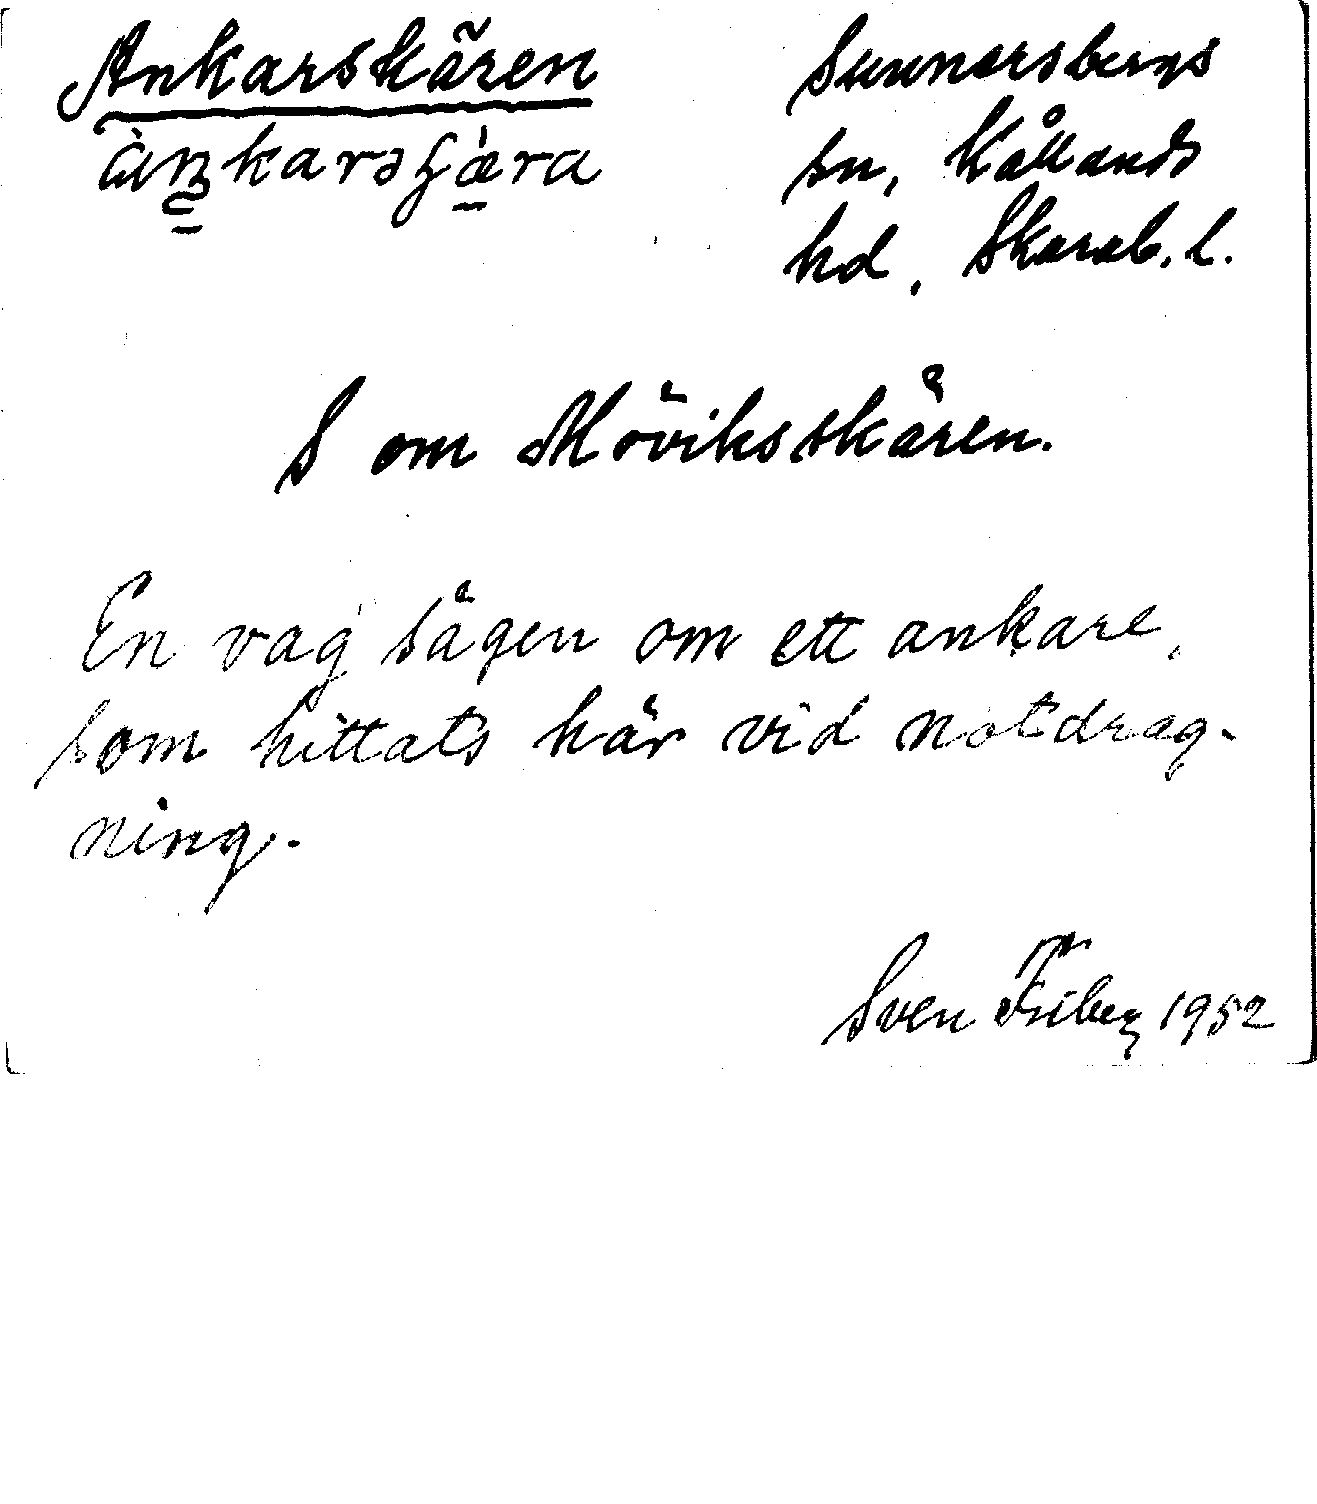 Ankarskären
Sunnersbergs
sn, Kållands
hd, Skarab. l.
S om Möviksskären.
En vag sägen om ett ankare,
som hittats här vid notdrag-
ning.
Sven Friberg 1952